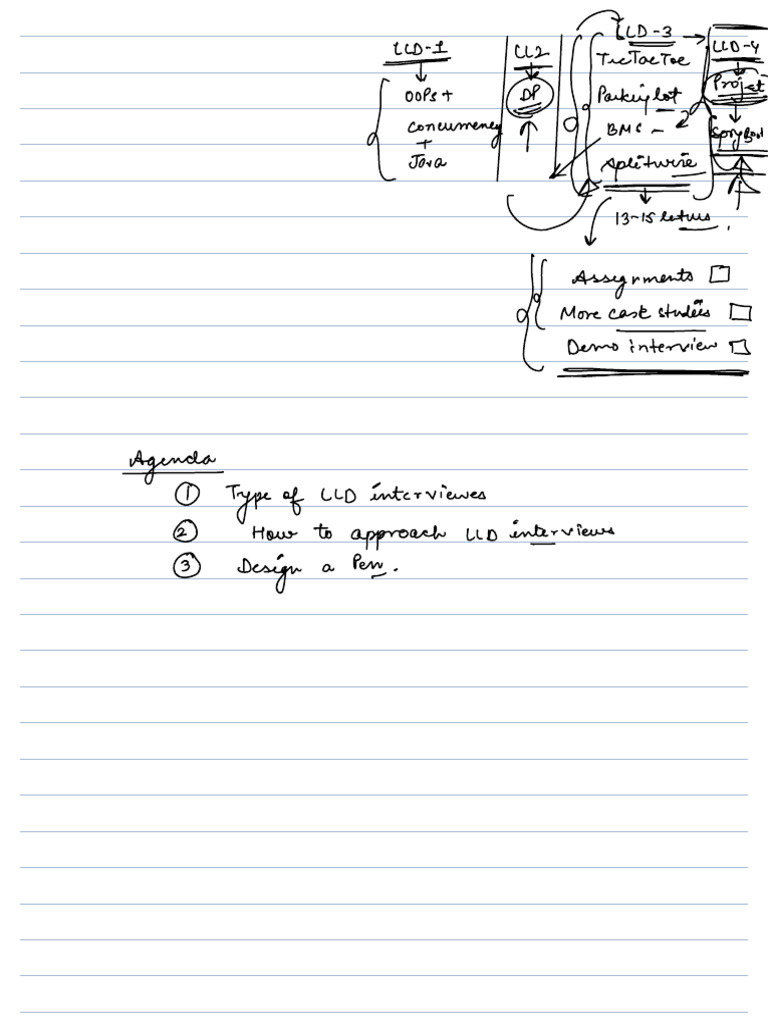 LLD-1
OOPs +
Concurrency
+
Java
LL2
DP
LLD-3
TicTacToe
Parking lot
BMS
Splitwise
13-15 letures
LLD-4
Project
Assignments
More case studies
Demo interview
Agenda
① Type of LLD interviewes
② How to approach LLD interviews
③ Design a Pen.